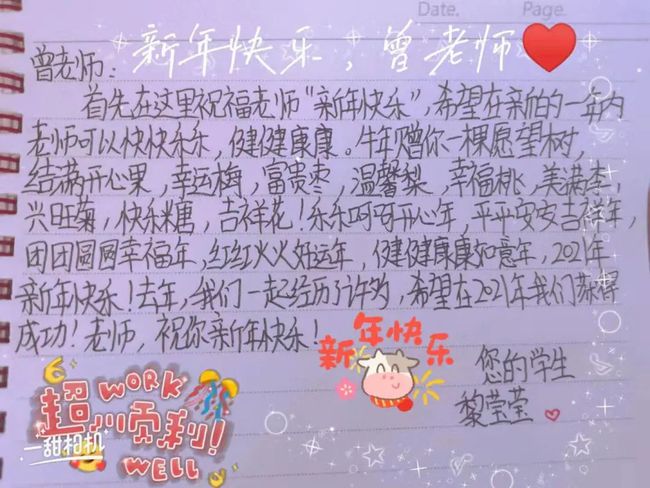 Date.
Page.
新年快乐，曾老师
曾老师：
首先在这里祝福老师“新年快乐”，希望在新的一年内
老师可以快快乐乐，健健康康。牛年赠你一棵愿望树，
结满开心果，幸运梅，富贵枣，温馨梨，幸福桃，美满李，
兴旺菊，快乐糖，吉祥花！乐乐呵呵开心年，平平安安吉祥年，
团团圆圆幸福年，红红火火好运年，健健康康如意年，2021年
新年快乐！去年，我们一起经历了许多，希望在2021年我们获得
成功！老师，祝你新年快乐！
新年快乐
您的学生
黎莹莹
WORK
超顺利！
WELL
一甜相机